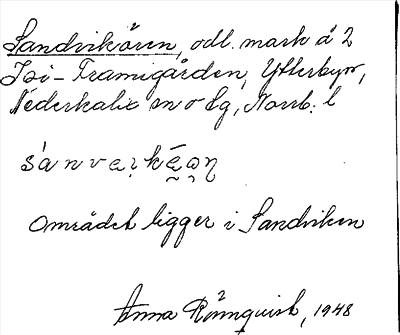 Sandviksören, odl. mark å 2
Isi-Framigården, Ytterbyn,
Nederkalix sn o lg, Norrb. l
området ligger i Sandviken
Anna Rönnquist, 1948